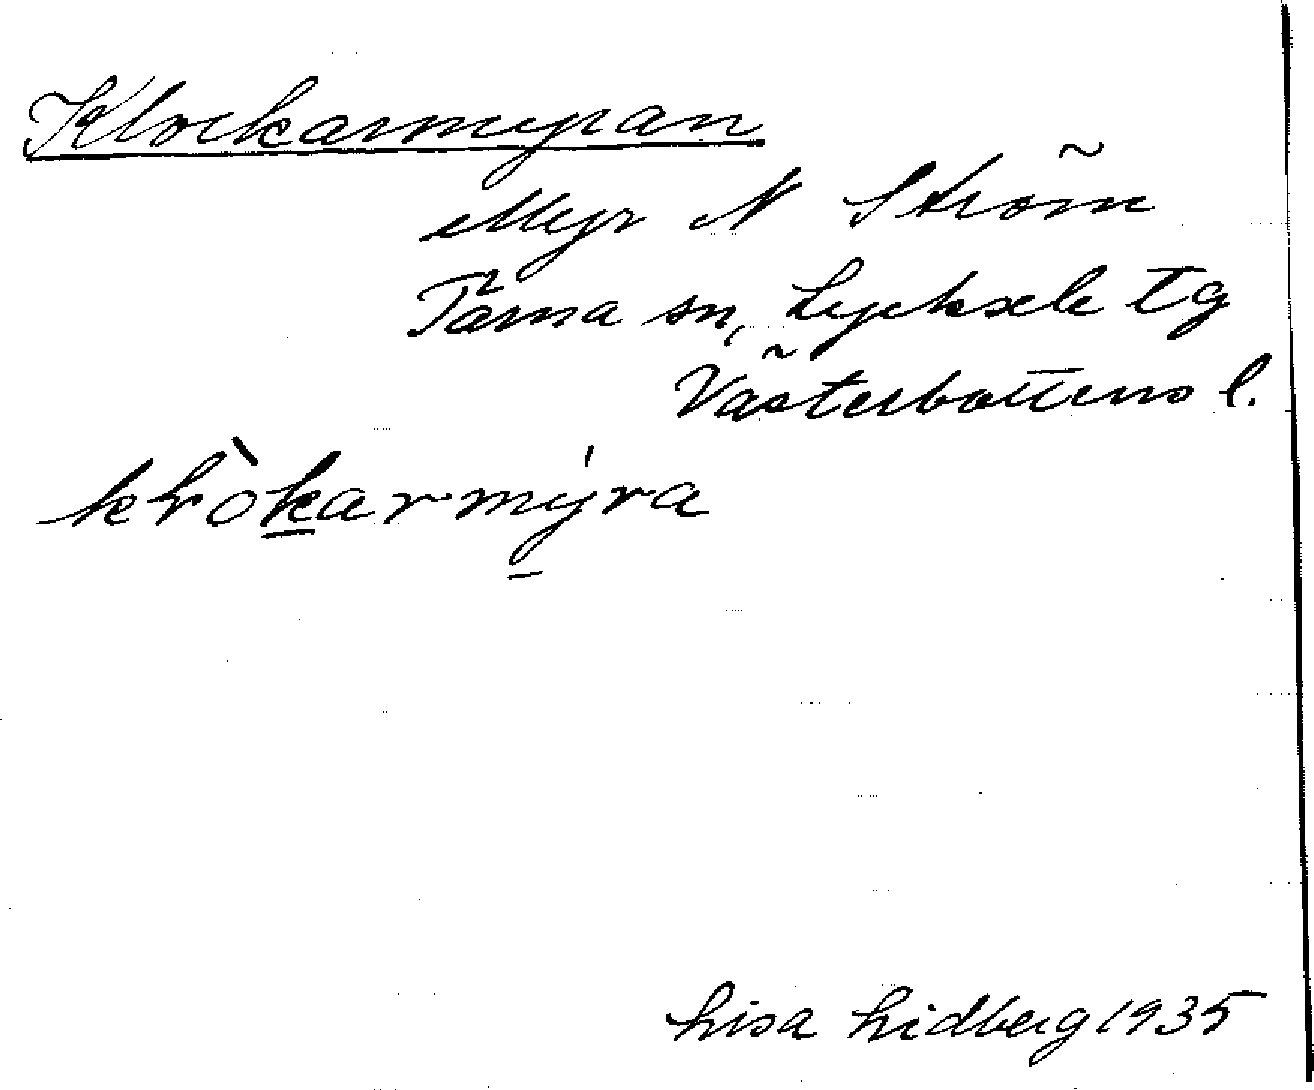 Klockarmyran
Myr N Ström
Tärna sn, Lycksele tg
Västerbottens l.
klòkarmýra
Lisa Lidberg 1935